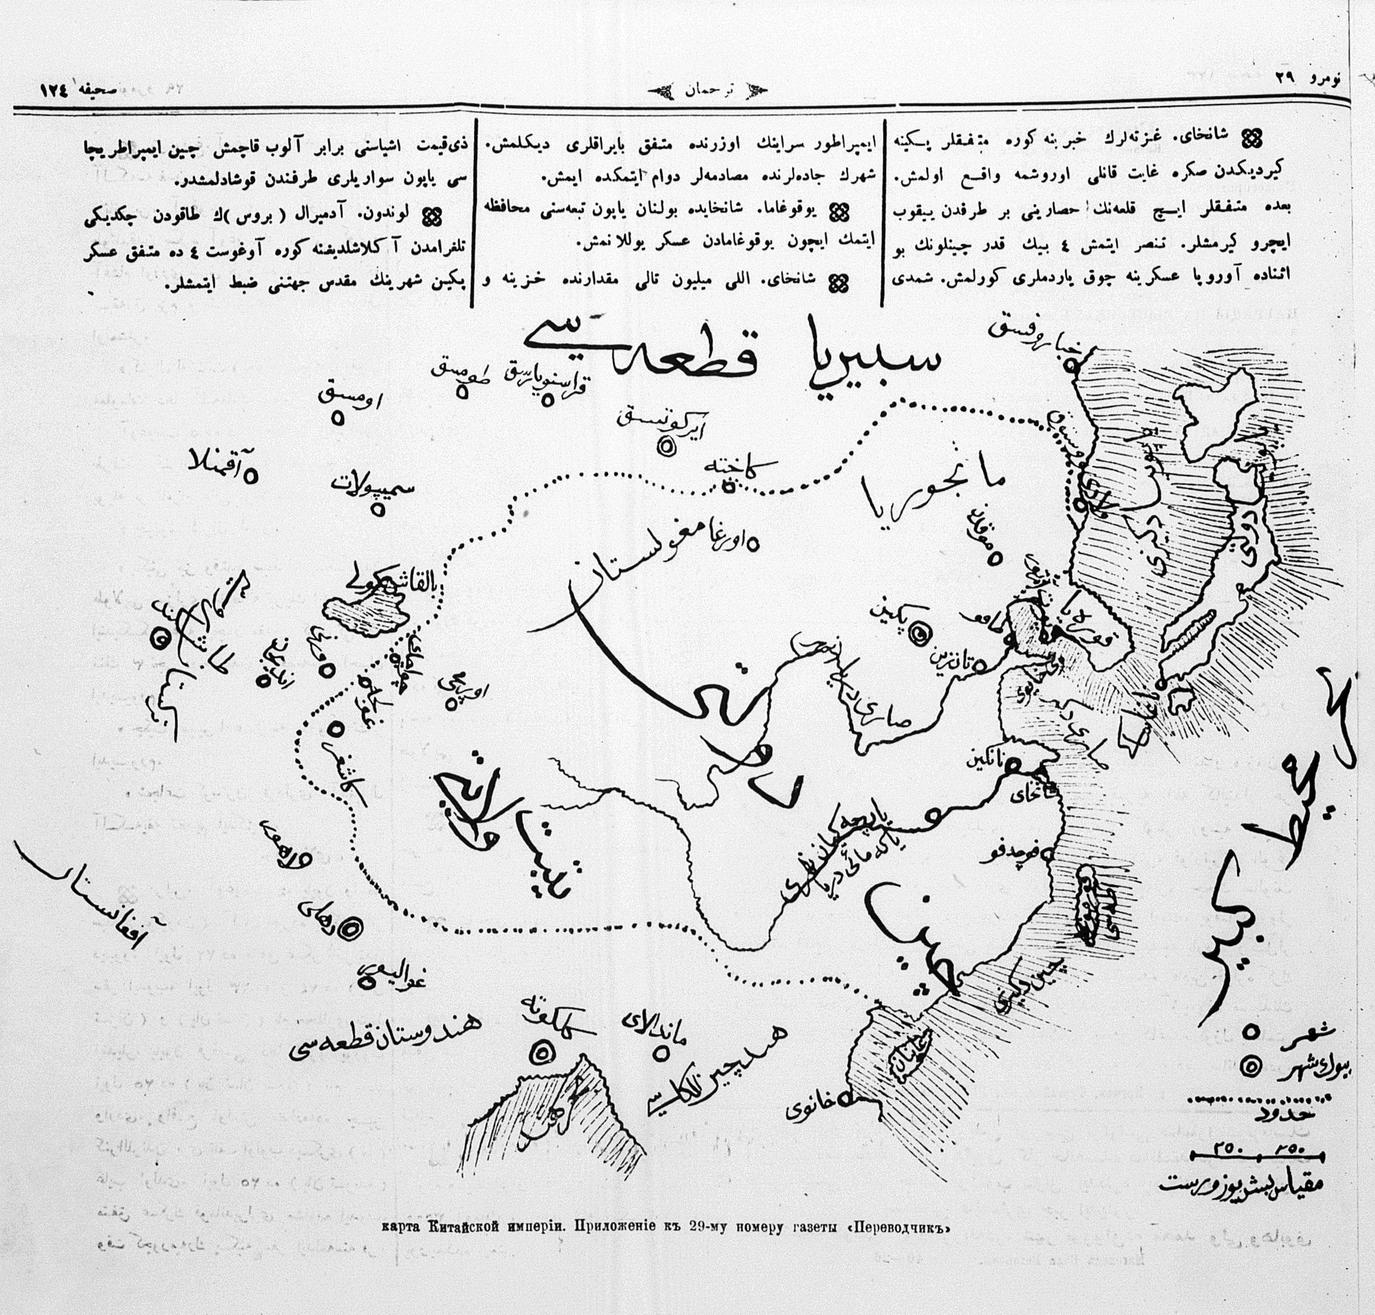 نومرو ٢٩
ترجمان
صحیفه ١٢٤
شانخای. غزته‌لرك خبرینه كوره متفقلر پكینه
كیردیكدن صكره غایت قانلی اوروشمه واقع اولمش.
بعده متفقلر ایچ قلعه‌نك حصارینی بر طرفدن ییقوب
ایچرو كیرمشلر. تنصر ایتمش ٤ بیك قدر چینلونك بو
اثناده آوروپا عسكرینه چوق یاردملری كورلمش. شمدی
ایمپراطور سراینك اوزرنده متفق بایراقلری دیكلمش.
شهرك جاده‌لرنده مصادمه‌لر دوام ایتمكده ایمش.
یوقوغاما. شانخایده بولنان یاپون تبعه‌سنی محافظه
ایتمك ایچون یوقوغامادن عسكر یوللانمش.
شانخای. اللی میلیون تالی مقدارنده خزینه و
ذی‌قیمت اشیاسنی برابر آلوب قاچمش چین ایمپراطریچا
سی یاپون سواریلری طرفندن قوشادلمشدر.
لوندون. آدمیرال (بروس)ك طاقودن چكدیكی
تلغرامدن آكلاشلدیغنه كوره آوغوست ٤ ده متفق عسكر
پكین شهرینك مقدس جهتنی ضبط ایتمشلر.
سبیریا قطعه سی
خباروفسق
قراسنویارسق
طومسق
اومسق
ایركوتسق
آقمنلا
سمیپولات
كاخته
مانجوریا
موقدن
اورغا
مغولستان
بالقاش كولی
تاشكند
اندیجان
ورنی
اورمچی
كاشغر
پكین
تاقو
تانزین
قوره یا
یاپون دكزی
صاری دریا
نانكین
شانخای
فوچدفو
ختای
تبت ولایتی
لاهور
دهلی
آفغانستان
غوالیور
هندوستان قطعه سی
كلكوته
ماندالای
هند چین
خانوی
خاینان
چین دكیزی
فورموزا
بحر محیط كبیر
شهر
بیوك شهر
حدود
٢٥٠ ٢٥٠
مقیاس بش یوز ویرست
карта Китайской имперіи. Приложеніе къ 29-му номеру газеты «Переводчикъ»